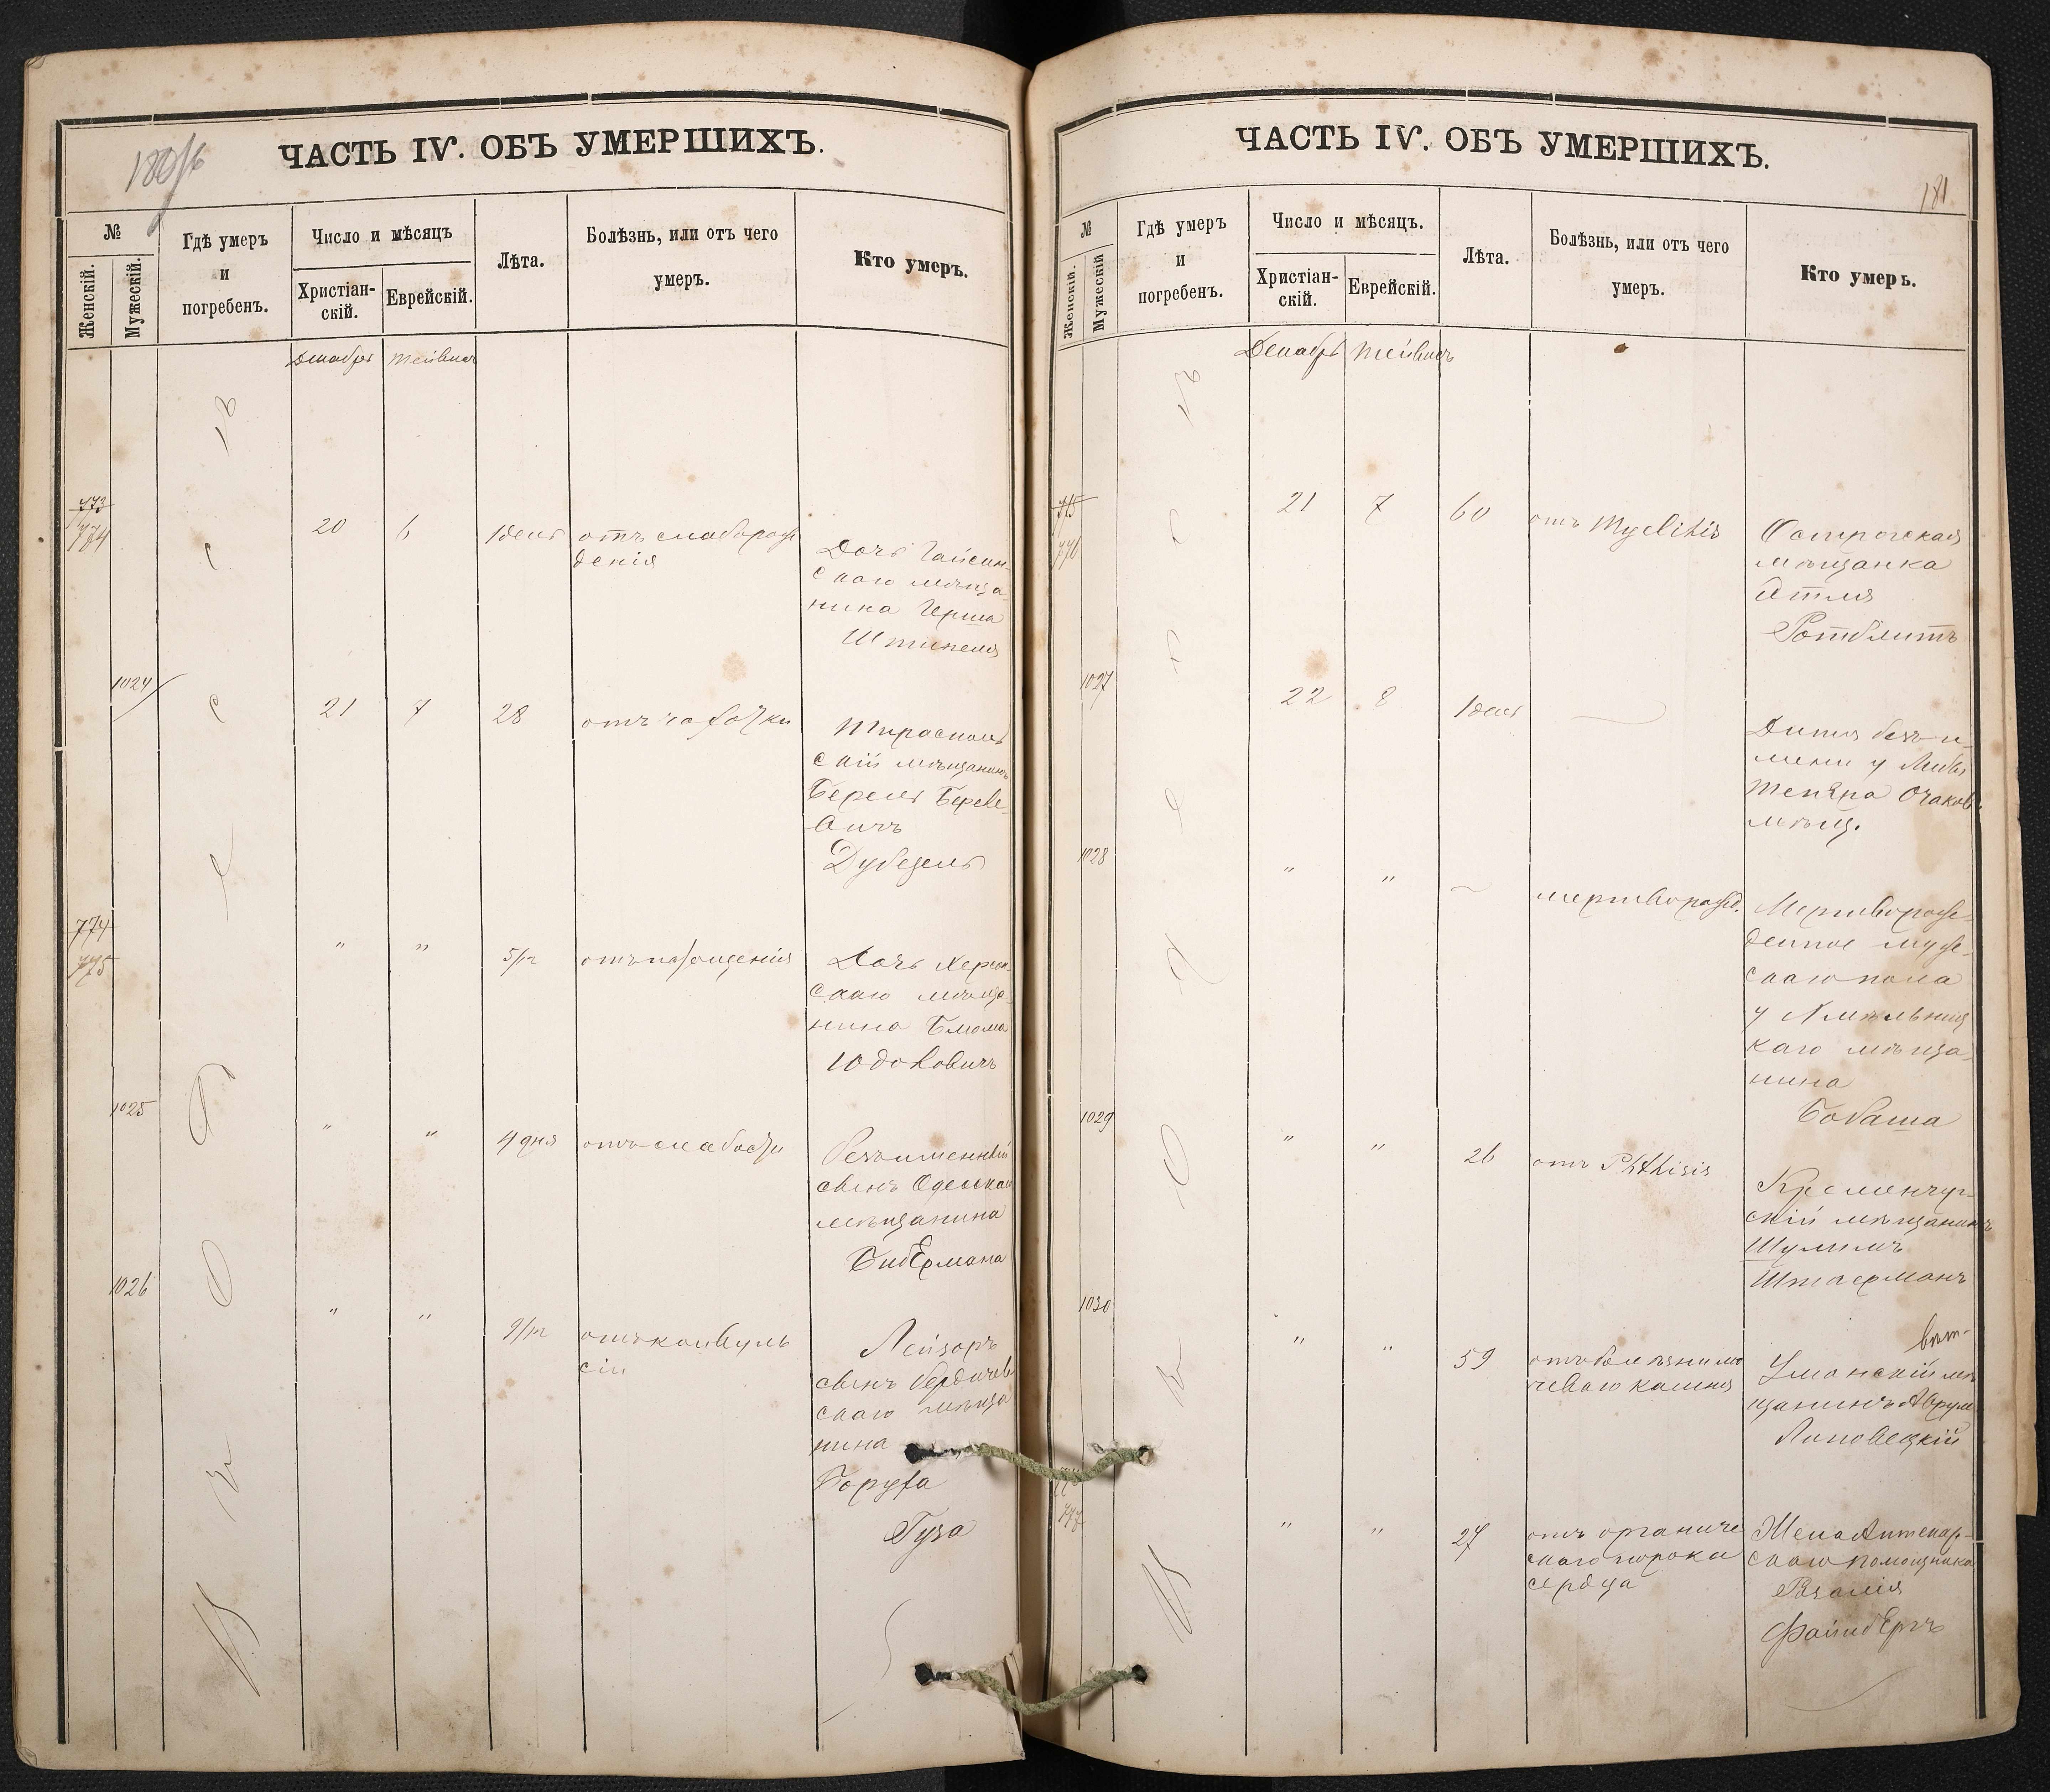 ЧАСТЬ IV. ОБЪ УМЕРШИХЪ.
№
Женскій.
Мужескій.
Гдѣ умеръ
и
погребенъ.
Число и мѣсяцъ
Христіан-
скій.
Еврейскій.
Лѣта.
Болѣзнь, или отъ чего
умеръ.
Кто умеръ.
Декабрь Тейвисъ
773
774
20 6 1 день отъ слаборож
денія
Дочь Гайсин-
скаго мѣща-
нина Герша
1024
21 7 28 отъ чахотки
Тирасполь
скій мѣщанинъ
Берель Берко-
вичъ
774
775
" " 5/м отъ истощенія
Дочь Херсон-
скаго мѣща-
нина
Юдовичъ
1025
" " 4 дня отъ слабости
Безъименный
сынъ Одесскаго
мѣщанина
Бибермана
1026
" " 9/м отъ конвуль
сіи
Лейзоръ
сынъ Бердичев
скаго мѣща
нина
Боруха
Гуза
ЧАСТЬ IV. ОБЪ УМЕРШИХЪ.
181
№
Женскій.
Мужескій
Гдѣ умеръ
и
погребенъ.
Число и мѣсяцъ.
Христіан-
скій.
Еврейскій.
Лѣта.
Болѣзнь, или отъ чего
умеръ.
Кто умеръ.
Декабрь Тейвисъ
775
776
21 7 60 отъ Myelitis
Острогская
мѣщанка
Этля
Ротблитъ
1027
22 8 1 день
Дитя безъ и-
мени у
Очаков.
мѣщ.
1028
" " мертворожд.
Мертворож-
денное муж-
скаго пола
у Хмельниц
каго мѣща-
нина
Бабаша
1029
" " 26 отъ Phthisis
Кременчуг-
скій мѣщанинъ
Шулимъ
Штаерманъ
1030
" " 59 отъ болѣзни мо
чеваго камня
Уманскій мѣ
щанинъ Абрум
Липовецкій
777
" " 27 отъ органиче
скаго порока
сердца
Жена Аптекар-
скаго помощника
Розалія
Файнбергъ